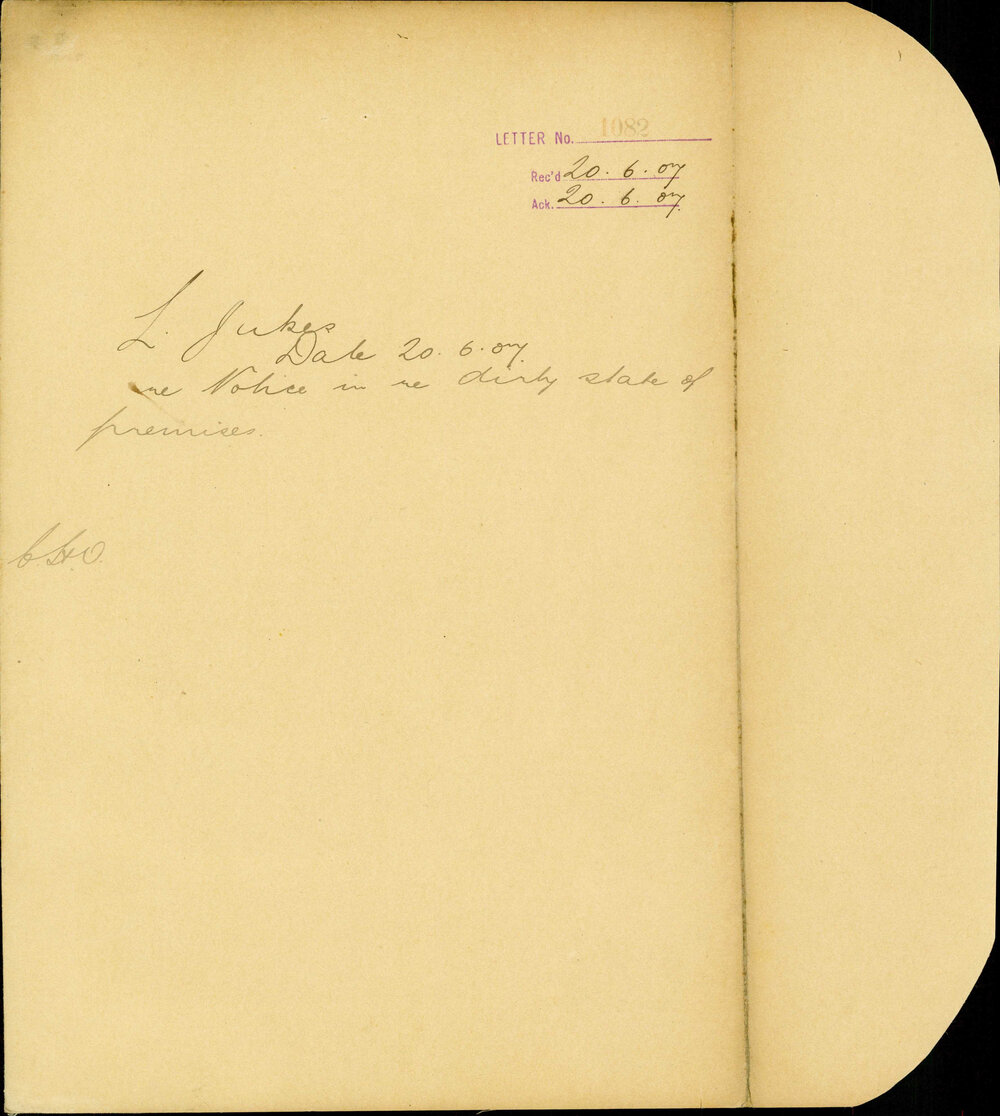 LETTER No. 1082
Rec'd 20. 6. 07
Ack. 20. 6. 07.
L. Jukes
Date 20. 6. 07.
re Notice in re dirty state of
premises.
C.H.O.